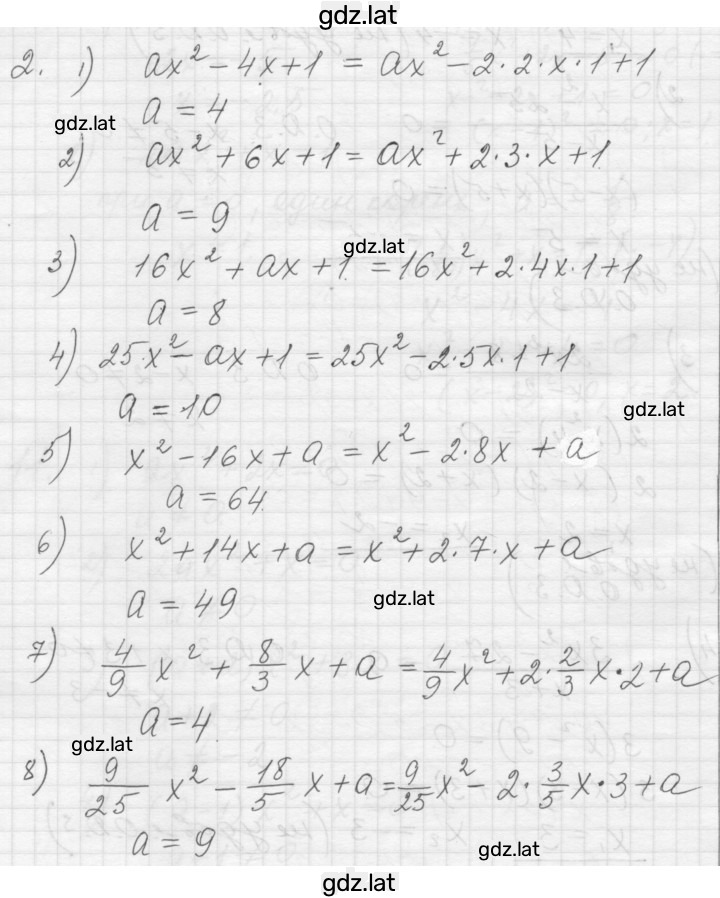 gdz.lat
2. 1) ax² - 4x + 1 = ax² - 2·2·x·1 + 1
a = 4
gdz.lat
2) ax² + 6x + 1 = ax² + 2·3·x + 1
a = 9
gdz.lat
3) 16x² + ax + 1 = 16x² + 2·4x·1 + 1
a = 8
4) 25x² - ax + 1 = 25x² - 2·5x·1 + 1
a = 10
gdz.lat
5) x² - 16x + a = x² - 2·8x + a
a = 64
6) x² + 14x + a = x² + 2·7·x + a
a = 49
gdz.lat
7) 4/9 x² + 8/3 x + a = 4/9 x² + 2·2/3 x·2 + a
a = 4
gdz.lat
8) 9/25 x² - 18/5 x + a = 9/25 x² - 2·3/5 x·3 + a
a = 9
gdz.lat
gdz.lat